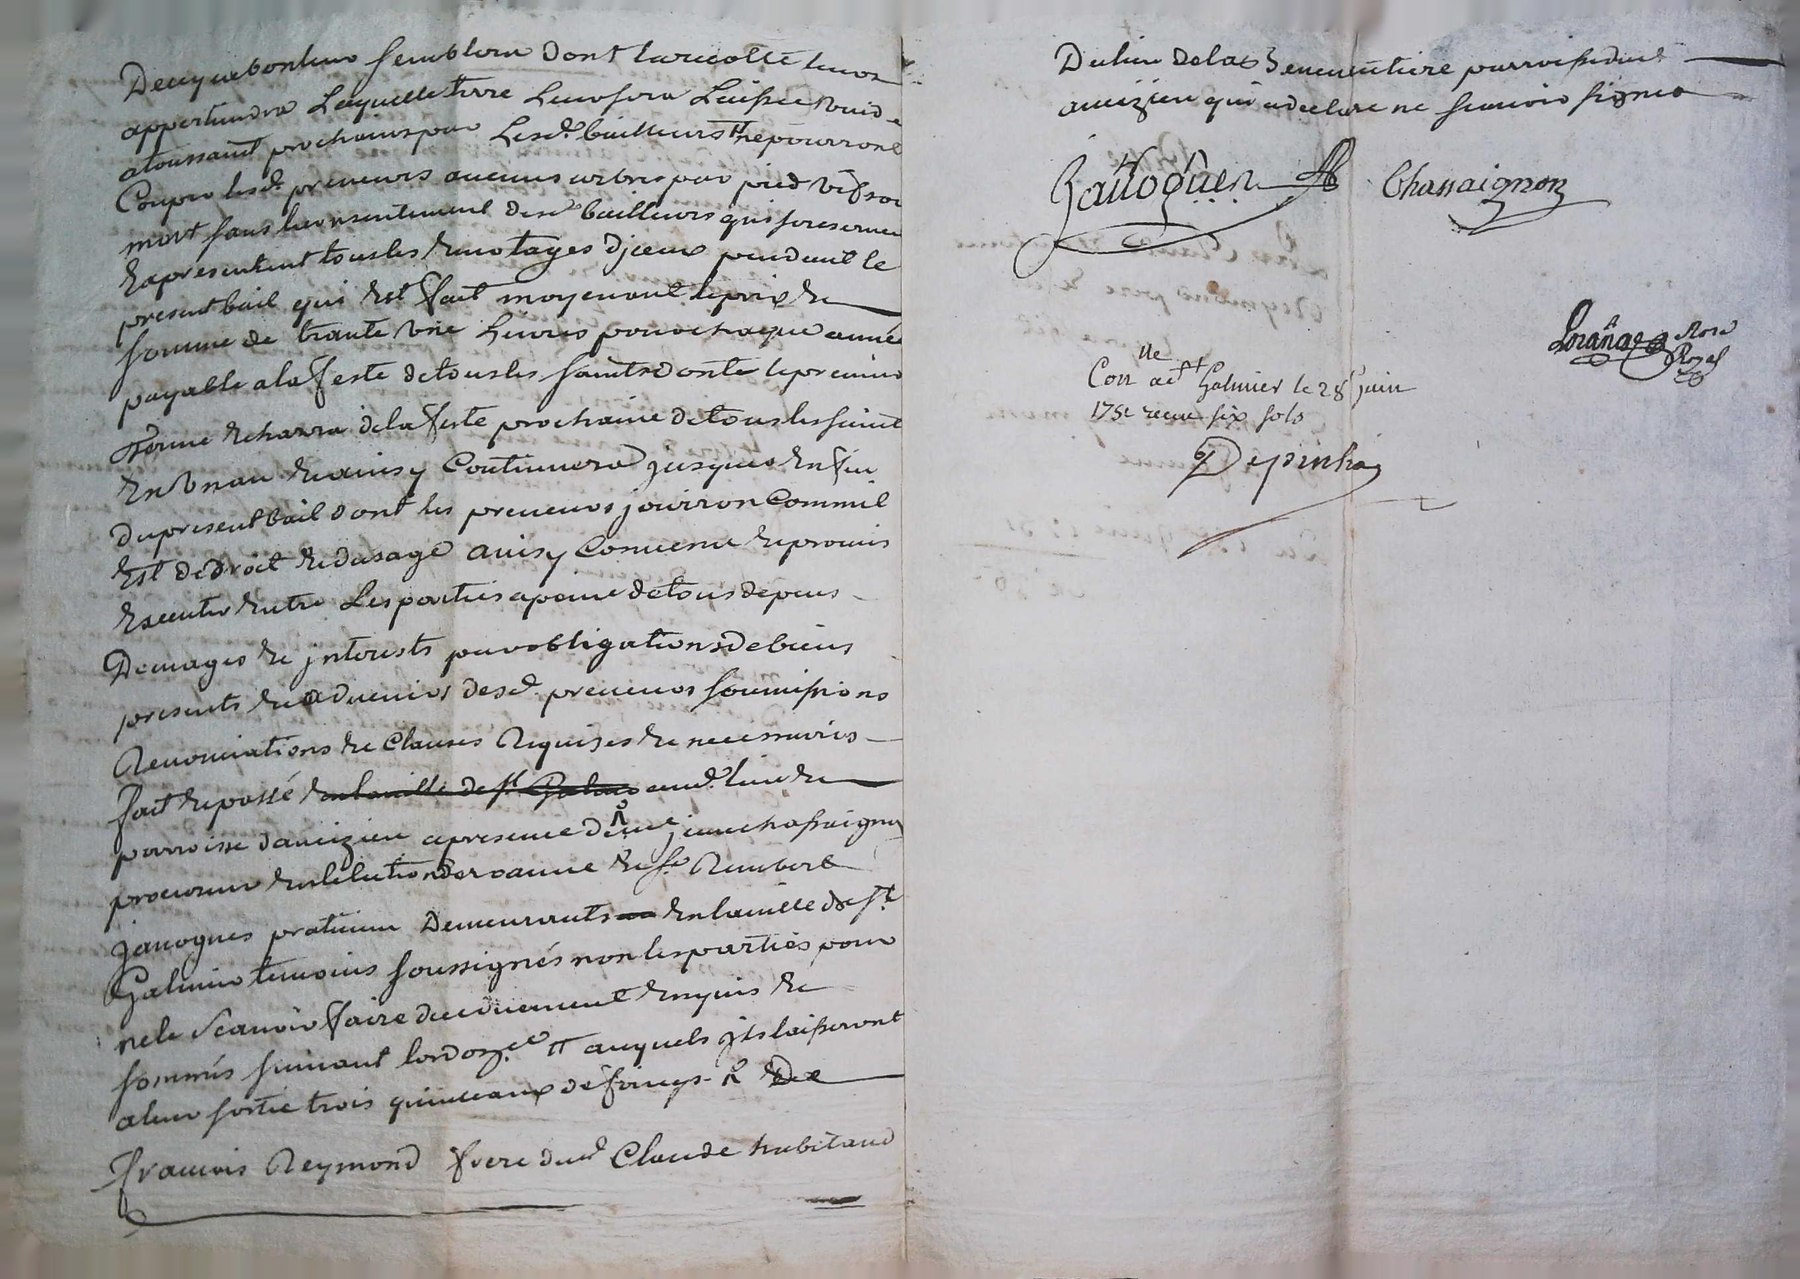 De ce que bon leur semblera dont la recolte leur
appertiendra Laquelle terre Leur sera Laissée vuide
a toussaint prochains par Lesd. bailleurs # ne pourront
Couper lesd. preneurs aucuns arbres par pied vif ou
mort sans le consentement desd. bailleurs qui se reservent
a present tous les emotages d'jceux pendant le
present bail qui Est fait moyenant le prix et
somme de trante une Livres pour chaque année
payable a la feste de tous les saints dont le premier
Terme echerra de la feste prochaine de tous les saint
En un an et ainsy Continuera jusques En fin
du present bail dont les preneurs jouiront Comm'il
Est de droit et d'usage ainsy Convenu et promis
Executer Entre Les parties a peine de tous depens
Domages et jnterests par obligations de biens
presents et advenirs desd. preneurs soumissions
Renonciations et Clauses Requises et necessaires
fait et passé en la ville de st Galmier aud. lieu et
parroisse d'aveizieu a presence de me jean chassaignon
procureur en l'election de roanne et sr. Rambert
janogues praticien Demeurants En la ville de St
Galmier temoins soussignés non les parties pour
ne le scavoir faire de ce duement Enquis et
sommés suivant l'ordoz.ce # auquels jls laisseront
a leur sortie trois quinteaux de foings
françois Reymond frere dud. Claude habitant
Du lieu de la Benevantiere parroisse dud.
aveizieu qui a declaré ne scavoir signer
Janoguer Chassaignon
Not
Royal
Con lle a St Galmier le 28 juin
1751 receu six sols
Depinhac